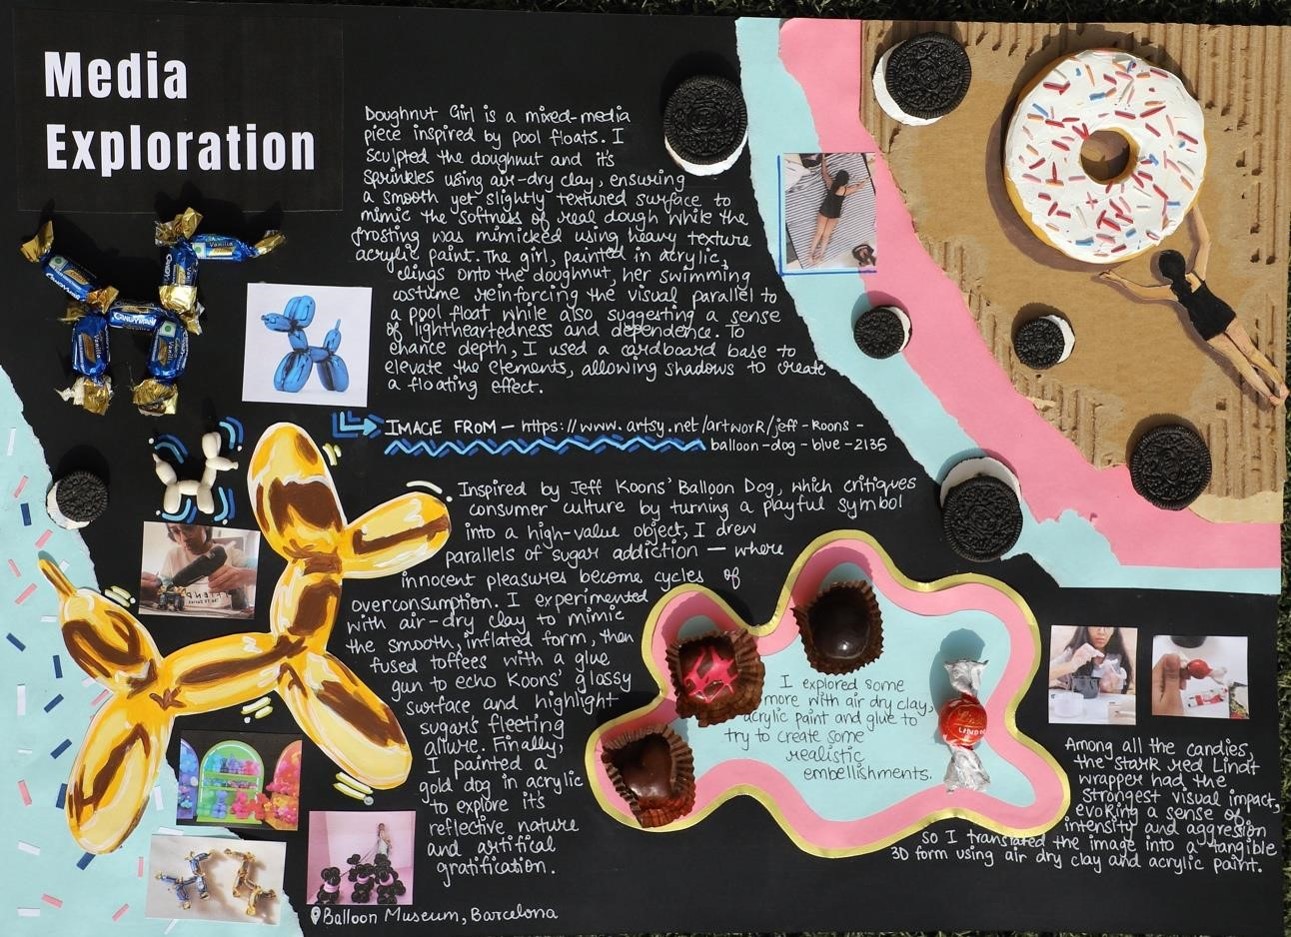 Media
Exploration
Doughnut Girl is a mixed-media
piece inspired by pool floats. I
sculpted the doughnut and it's
sprinkles using air-dry clay, ensuring
a smooth yet slightly textured surface to
mimic the softness of real dough while the
frosting was mimicked using heavy texture
acrylic paint. The girl, painted in acrylic,
clings onto the doughnut, her swimming
costume reinforcing the visual parallel to
a pool float while also suggesting a sense
of lightheartedness and dependence. To
enhance depth, I used a cardboard base to
elevate the elements, allowing shadows to create
a floating effect.
IMAGE FROM – https://www.artsy.net/artwork/jeff-koons-
balloon-dog-blue-2135
Inspired by Jeff Koons' Balloon Dog, which critiques
consumer culture by turning a playful symbol
into a high-value object, I drew
parallels of sugar addiction – where
innocent pleasures become cycles of
overconsumption. I experimented
with air-dry clay to mimic
the smooth, inflated form, then
fused toffees with a glue
gun to echo Koons' glossy
surface and highlight
sugar's fleeting
allure. Finally,
I painted a
gold dog in acrylic
to explore its
reflective nature
and artifical
gratification.
Balloon Museum, Barcelona
I explored some
more with air dry clay,
acrylic paint and glue to
try to create some
realistic
embellishments.
Among all the candies,
the stark red Lindt
wrapper had the
strongest visual impact,
evoking a sense of
intensity and aggresion
so I translated the image into a tangible
3D form using air dry clay and acrylic paint.